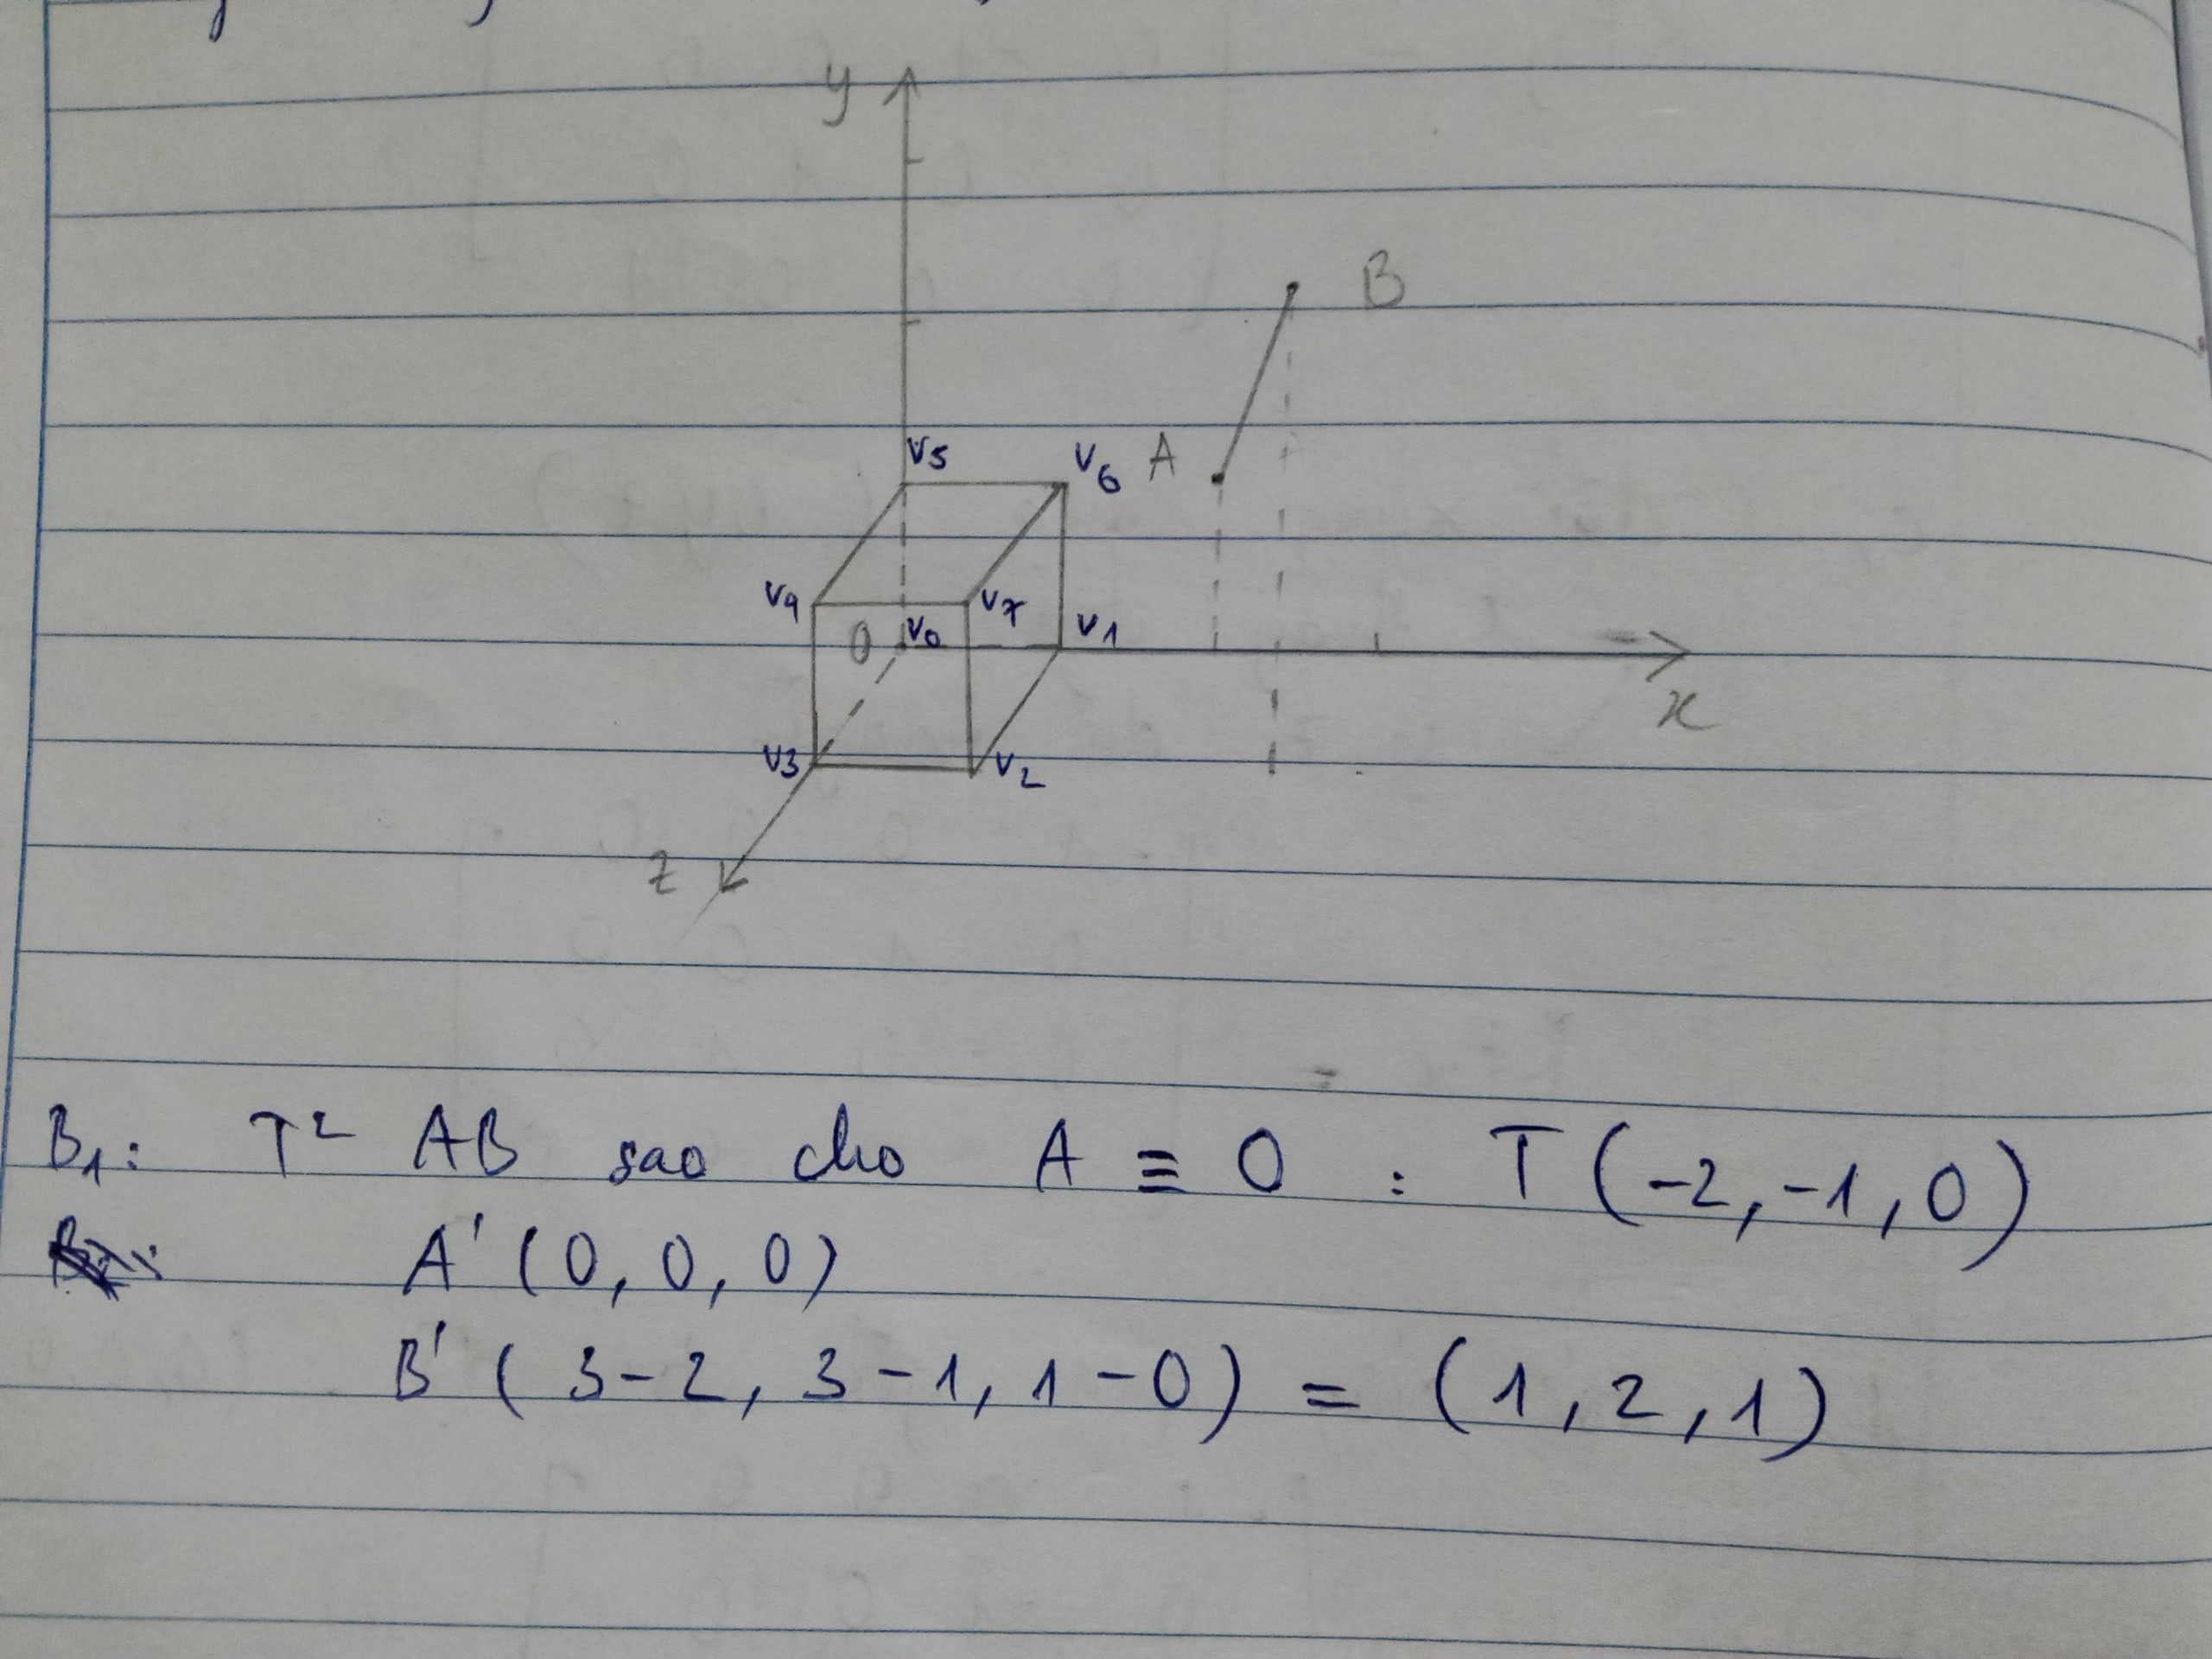 y
B
V5
V6 A
V4 V7
O V0 V1
x
V3 V2
z
B1: T² AB sao cho A ≡ O : T(-2, -1, 0)
A' (0, 0, 0)
B' ( 3-2, 3-1, 1-0) = (1, 2, 1)